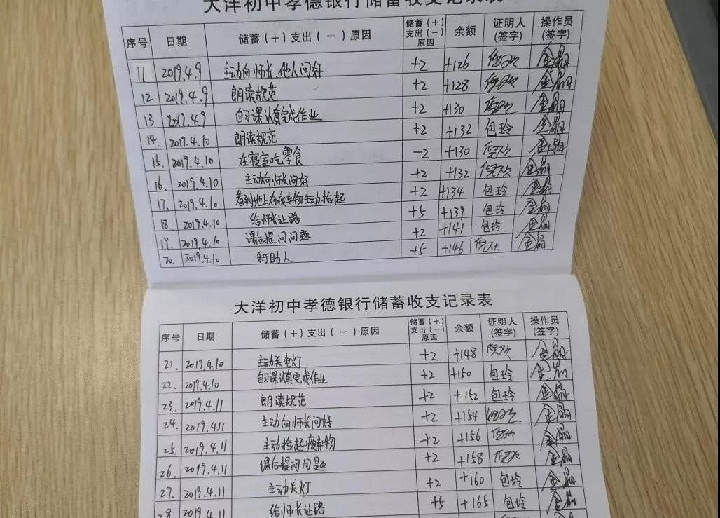 大洋初中孝德银行储蓄收支记录表
序号 日期 储蓄(+)支出(-)原因 储蓄(+)支出(-)原因 余额 证明人(签字) 操作员(签字)
11 2019.4.9 主动向师长、他人问好 +2 +126
12 2019.4.9 朗读规范 +2 +128
13 2019.4.9 自习课认真完成作业 +2 +130
14. 2019.4.10 朗读规范 +2 +132 包玲
15. 2019.4.10 在寝室吃零食 -2 +130
16. 2019.4.10 主动向师长问好 +2 +132
17. 2019.4.10 看到地上有废弃物主动捡起 +2 +134 包玲
18. 2019.4.10 给师长让路 +5 +139 包玲
19. 2019.4.10 课后提问问题 +2 +141 包玲
20. 2019.4.10 帮助人 +5 +146
大洋初中孝德银行储蓄收支记录表
序号 日期 储蓄(+)支出(-)原因 储蓄(+)支出(-)原因 余额 证明人(签字) 操作员(签字)
21. 2019.4.10 主动关电灯 +2 +148
22. 2019.4.10 自习课认真完成作业 +2 +150 包玲
23. 2019.4.11 朗读规范 +2 +152 包玲
24. 2019.4.11 主动向师长问好 +2 +154
25. 2019.4.11 主动捡起废弃物 +2 +156
26. 2019.4.11 课后提问问题 +2 +158
27. 2019.4.11 主动关灯 +2 +160 包玲
28. 2019.4.11 给师长让路 +5 +165 包玲